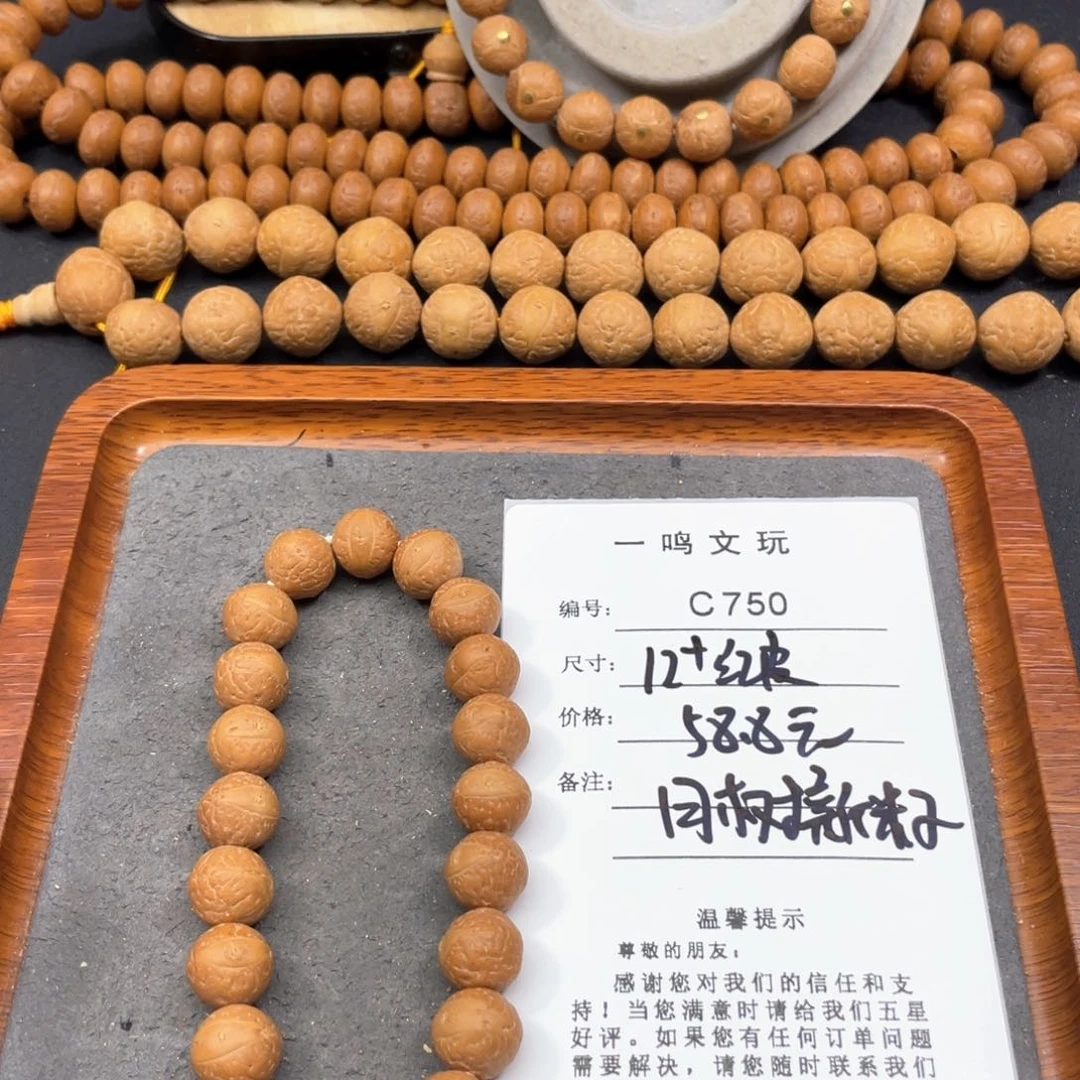 一鸣文玩
编号: C750
尺寸: 12+红皮
价格: 58.8元
备注: 同树
温馨提示
尊敬的朋友:
感谢您对我们的信任和支
持!当您满意时请给我们五星
好评。如果您有任何订单问题
需要解决,请您随时联系我们